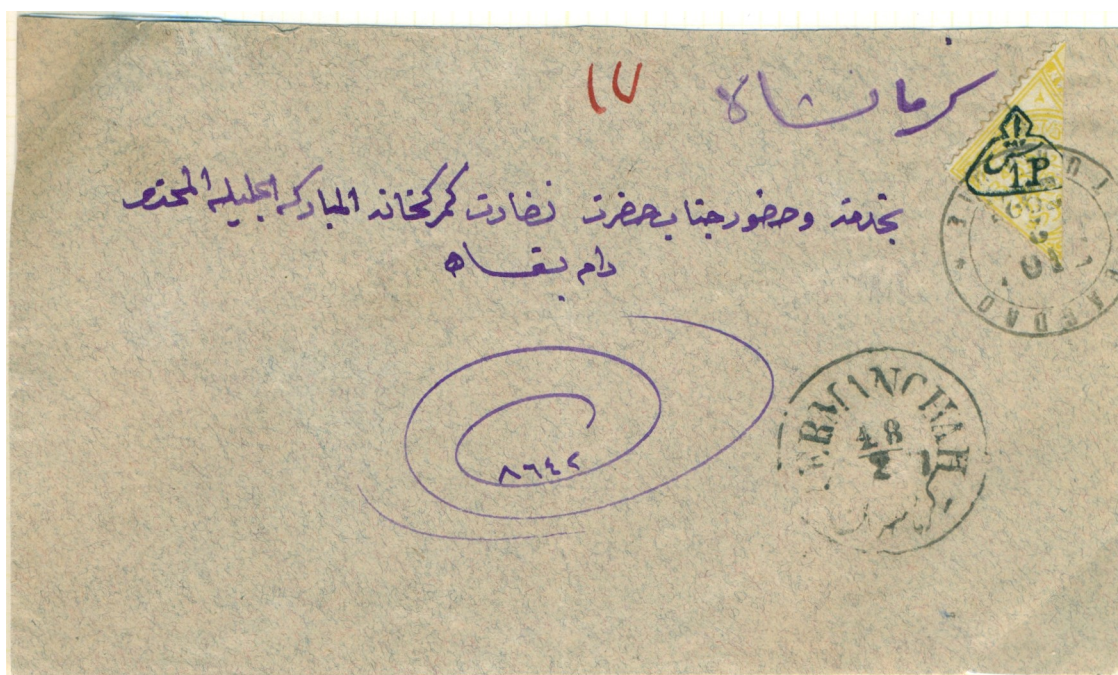 کرمانشاه
١٧
بخدمة وحضور جناب حضرت نضارت کمرکخانه المبارکه الجلیله المحترم
دام بقاه
1P
BAGDAD
KERMANCHAH
18
2 1
٨٦٤٢